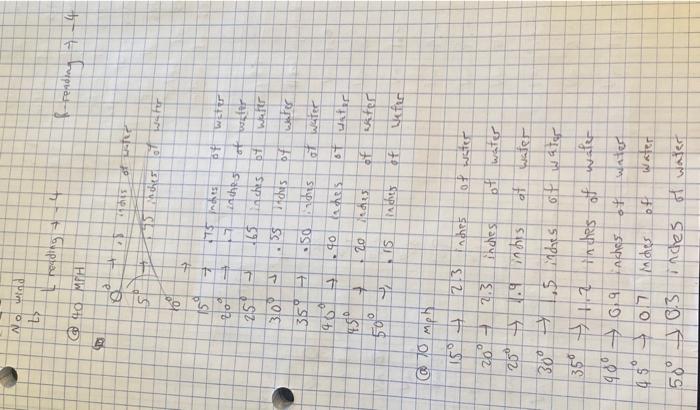 No wind
↳ L reading → -4 R-reading → -4
@ 40 MPH
0° → .5 inches of water
5° → .55 inches of water
10° →
15° → .75 inches of water
20° → .7 inches of water
25° → .65 inches of water
30° → .55 inches of water
35° → .50 inches of water
40° → .40 inches of water
45° → .20 inches of water
50° → .15 inches of water
@ 70 mph
15° → 2.3 inches of water
20° → 2.3 inches of water
25° → 1.9 inches of water
30° → 1.5 inches of water
35° → 1.2 inches of water
40° → 0.9 inches of water
45° → 0.7 inches of water
50° → 0.3 inches of water